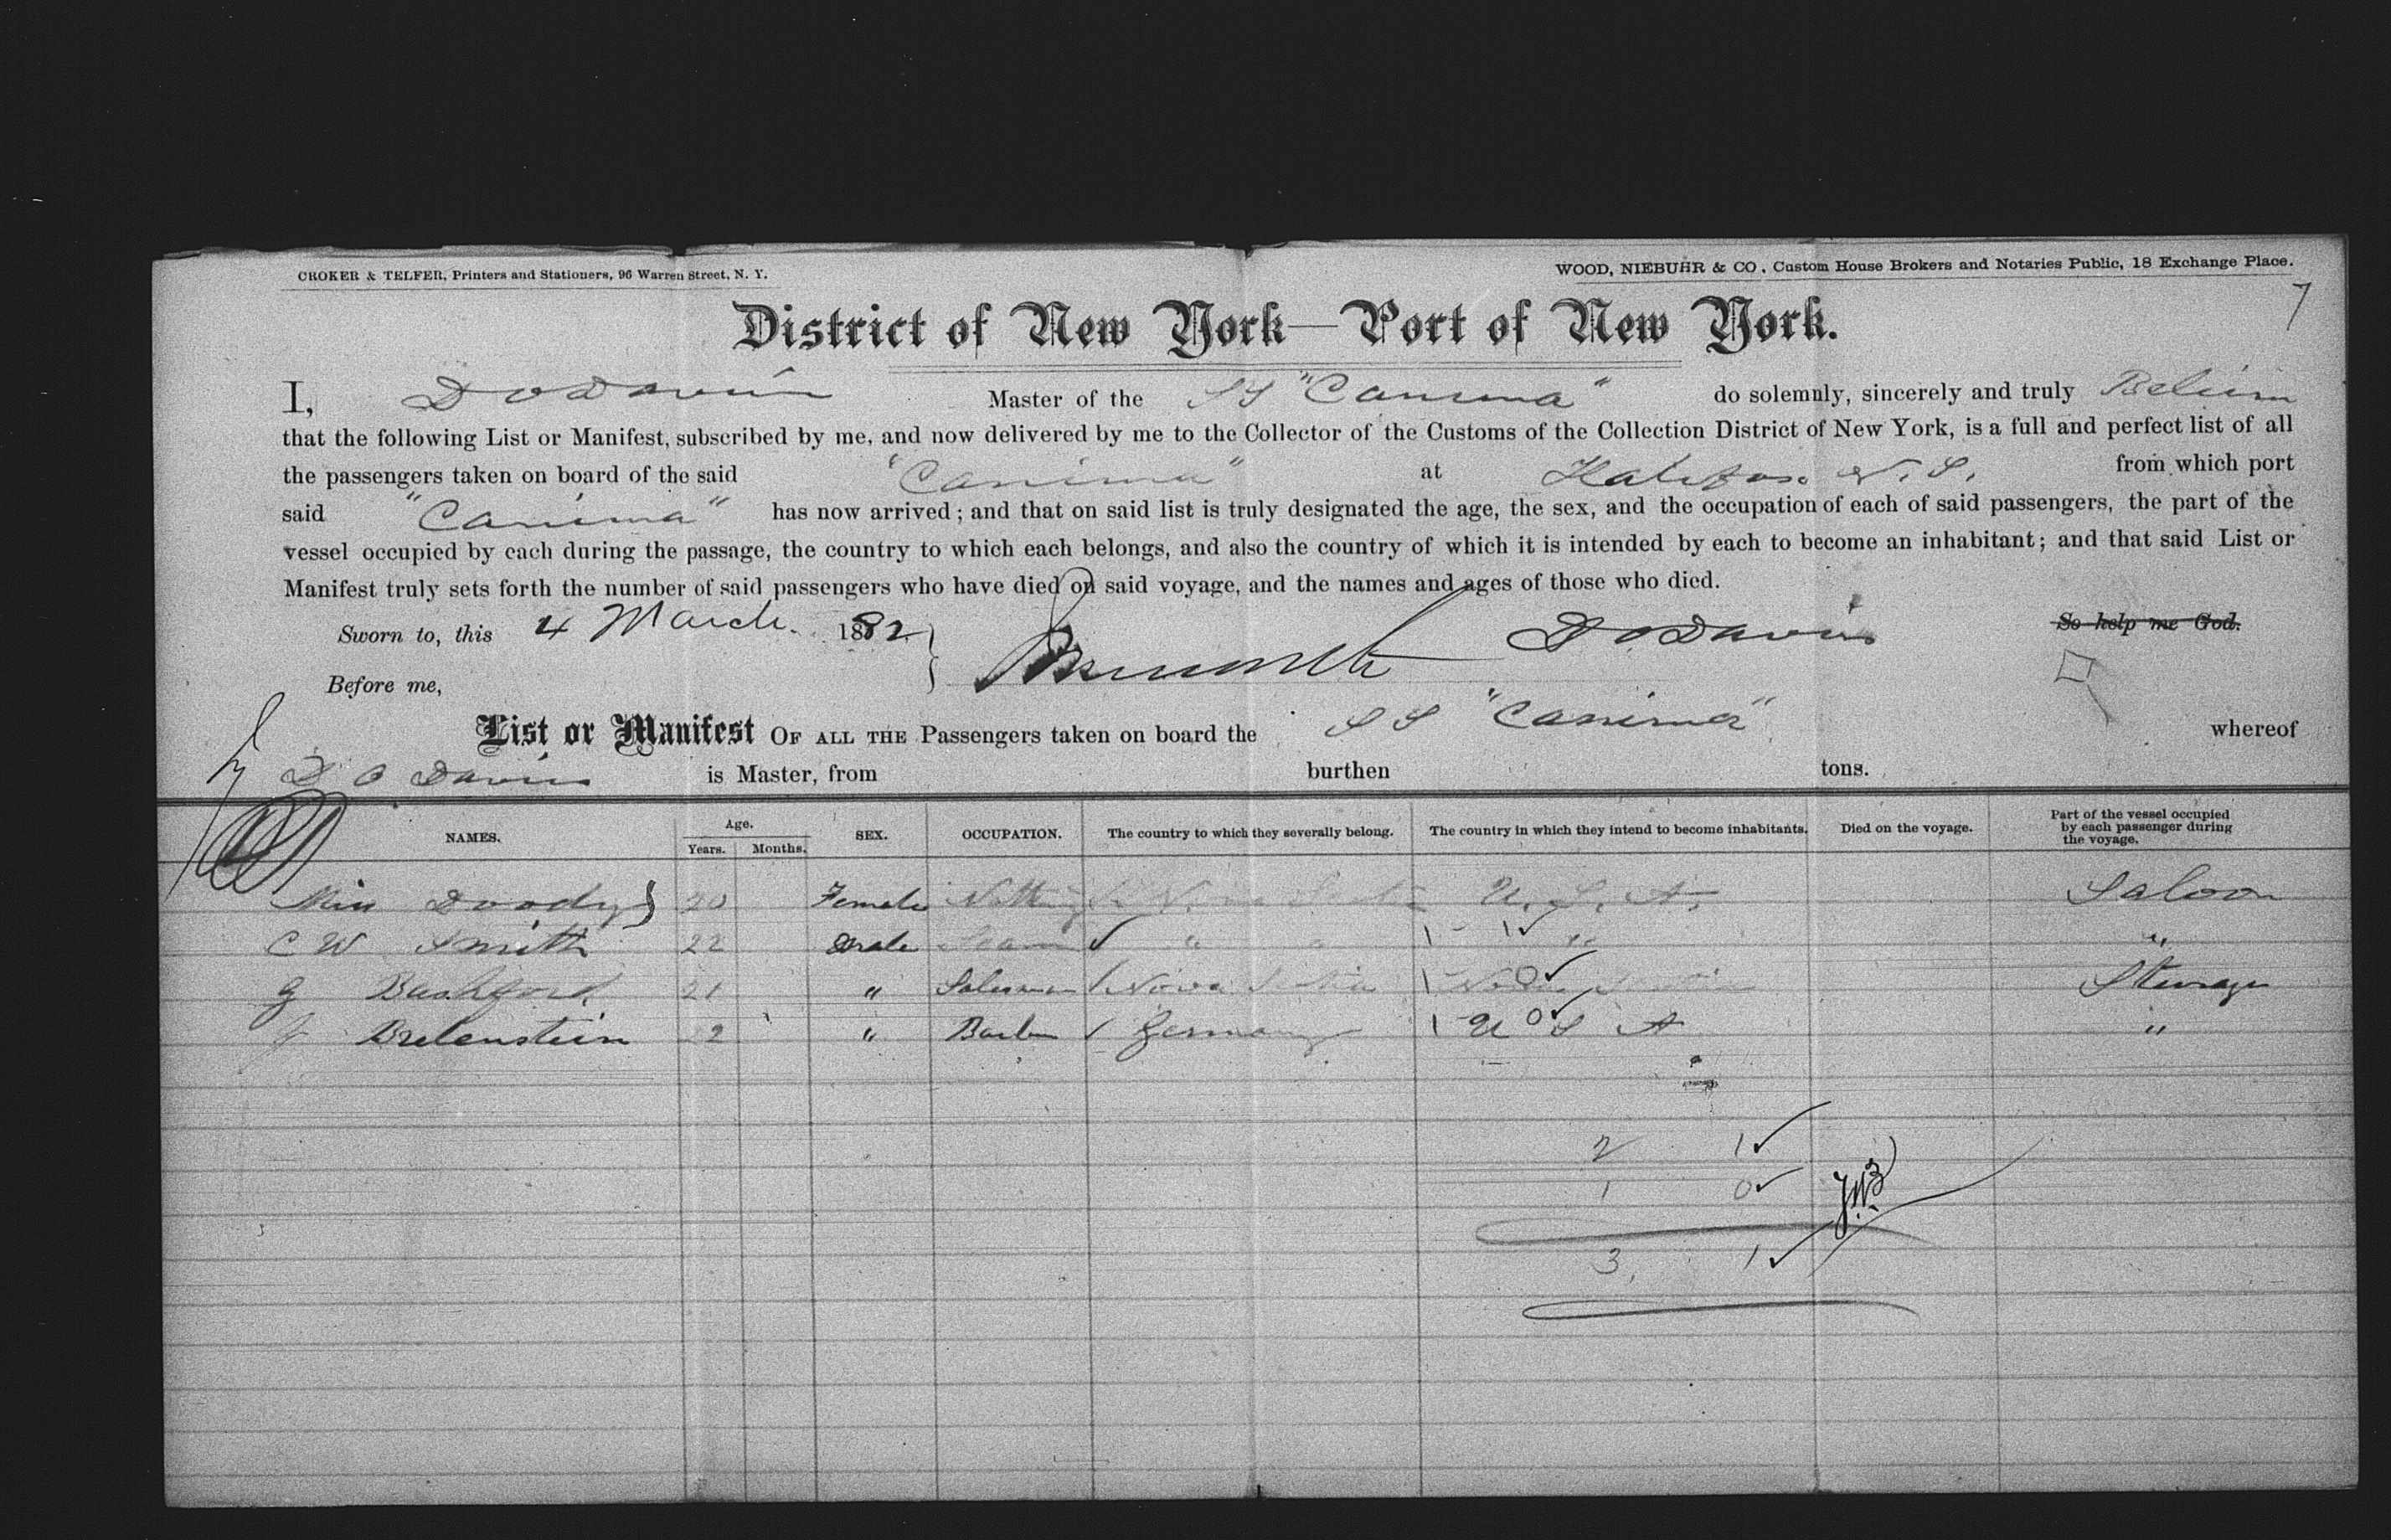 CROKER & TELFER, Printers and Stationers, 96 Warren Street, N. Y.
WOOD, NIEBUHR & CO., Custom House Brokers and Notaries Public, 18 Exchange Place.
7
District of New York—Port of New York.
I, D O Davis Master of the SS "Canima" do solemnly, sincerely and truly
that the following List or Manifest, subscribed by me, and now delivered by me to the Collector of the Customs of the Collection District of New York, is a full and perfect list of all
the passengers taken on board of the said "Canima" at Halifax. N. S. from which port
said "Canima" has now arrived; and that on said list is truly designated the age, the sex, and the occupation of each of said passengers, the part of the
vessel occupied by each during the passage, the country to which each belongs, and also the country of which it is intended by each to become an inhabitant; and that said List or
Manifest truly sets forth the number of said passengers who have died on said voyage, and the names and ages of those who died.
Sworn to, this 4 March. 1882 D O Davis So help me God.
Before me,
List or Manifest OF ALL THE Passengers taken on board the SS "Canima" whereof
D O Davis is Master, from burthen tons.
NAMES. Age. Years. Months. SEX. OCCUPATION. The country to which they severally belong. The country in which they intend to become inhabitants. Died on the voyage. Part of the vessel occupied by each passenger during the voyage.
Miss Doody 20 Female Nothing Nova Scotia U. S. A. Saloon
C W Smith 22 Male " " 1 - 1✓ " "
G Bashford 21 " Salesman Nova Scotia 1 - 0✓ Nova Scotia Steerage
Brelenstein 2 " Barber Germany 1 - 0✓ U S A "
2 1✓
1 0✓
3 1✓